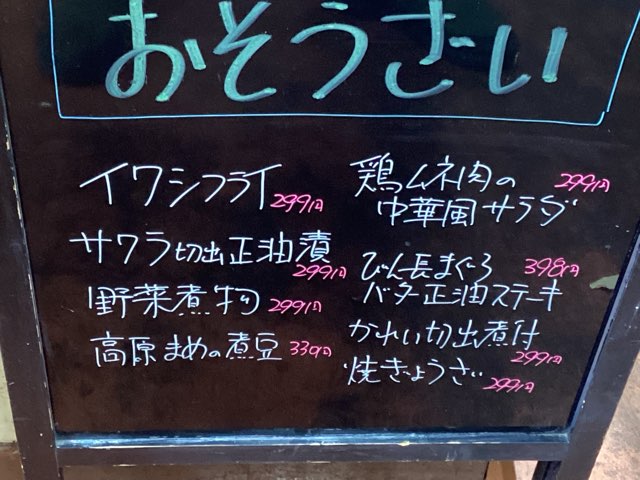 おそうざい
イワシフライ 299円
サワラ切出正油漬
299円
野菜煮物 299円
高原まめの煮豆 330円
鶏ムネ肉の 299円
中華風サラダ
びん長まぐろ 398円
バター正油ステーキ
かれい切出煮付
299円
焼きょうざ 299円